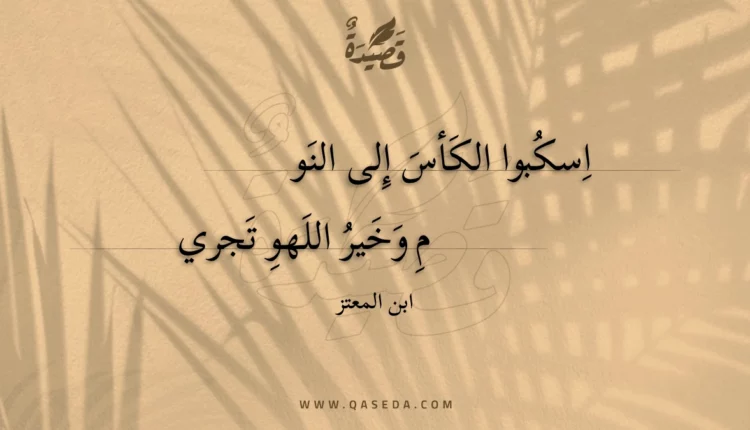 قَصِيْدَةٌ
اِسكُبوا الكَأسَ إِلى النَو
مِ وَخَيرُ اللَهوِ تَجري
ابن المعتز
WWW.QASEDA.COM